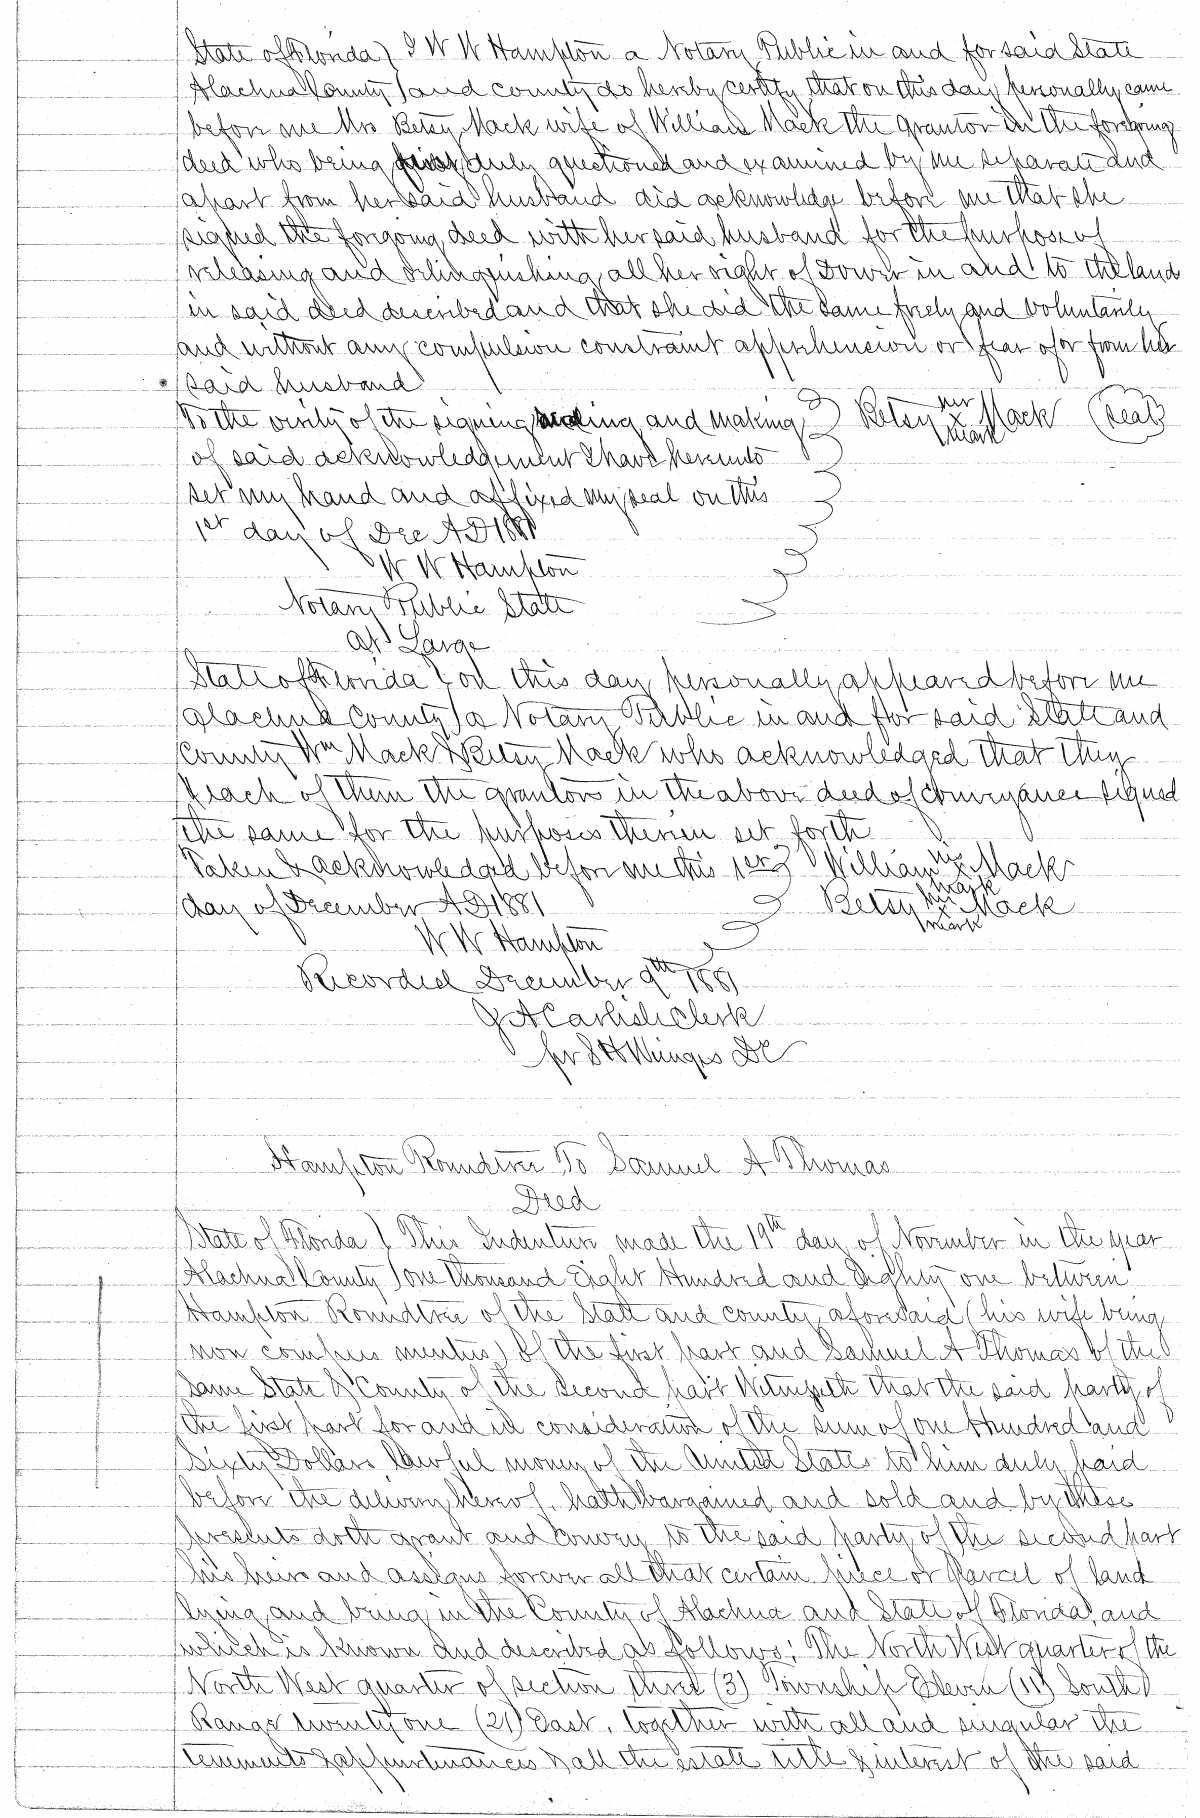 State of Florida } I W W Hampton a Notary Public in and for said State
Alachua County } and county do hereby certify that on this day personally came
before me Mrs Betsy Mack wife of William Mack the grantor in the foregoing
deed who being first duly questioned and examined by me separate and
apart from her said husband did acknowledge before me that she
signed the foregoing deed with her said husband for the purpose of
releasing and relinquishing all her right of Dower in and to the land
in said deed described and that she did the same freely and voluntarily
and without any compulsion constraint apprehension or fear of or from her
said husband
To the verity of the signing sealing and making } Betsy her x mark Mack (Seal)
of said acknowledgement I have hereunto
set my hand and affixed my seal on this
1st day of Dec AD 1881
W W Hampton
Notary Public State
at Large
State of Florida } on this day personally appeared before me
Alachua County } a Notary Public in and for said State and
County Wm Mack & Betsy Mack who acknowledged that they
& each of them the grantors in the above deed of conveyance signed
the same for the purposes therein set forth
Taken & acknowledged before me this 1st } William his x mark Mack
day of December AD 1881 } Betsy her x mark Mack
W W Hampton
Recorded December 9th 1881
J A Carlisle Clerk
pr S H Wienges DC
Hampton Roundtree To Samuel A Thomas
Deed
State of Florida } This Indenture made the 19th day of November in the year
Alachua County } one thousand Eight Hundred and Eighty one between
Hampton Roundtree of the State and county aforesaid (his wife being
non compis mentis) of the first part and Samuel A Thomas of the
same State & County of the second part Witnesseth that the said party of
the first part for and in consideration of the sum of one Hundred and
Sixty Dollars lawful money of the United States to him duly paid
before the delivery hereof hath bargained and sold and by these
presents doth grant and convey to the said party of the second part
his heirs and assigns forever all that certain piece or parcel of land
lying and being in the County of Alachua and State of Florida, and
which is known and described as follows: The North West quarter of the
North West quarter of section three (3) Township Eleven (11) South
Range twenty one (21) East, together with all and singular the
tenements & appurtenances & all the estate title & interest of the said